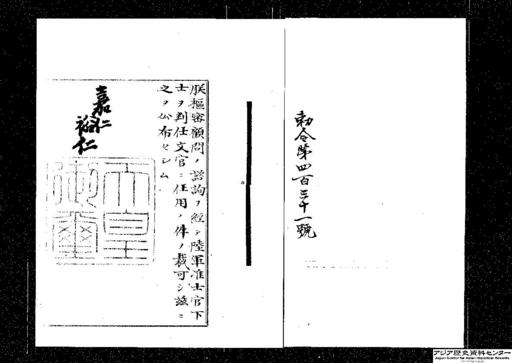 勅令第四百三十一號
朕樞密顧問ノ諮詢ヲ經テ陸軍准士官下
士ヲ判任文官ニ任用ノ件ヲ裁可シ茲ニ
之ヲ公布セシム
嘉仁
裕仁
天皇御璽
アジア歴史資料センター
Japan Center for Asian Historical Records